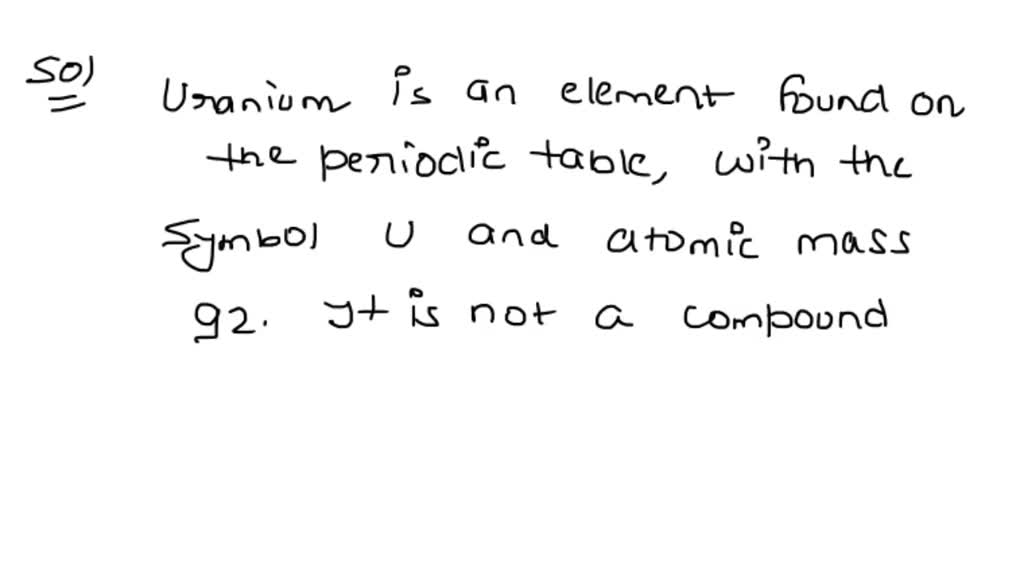 Sol
Uranium is an element found on
the periodic table, with the
Symbol U and atomic mass
92. It is not a compound